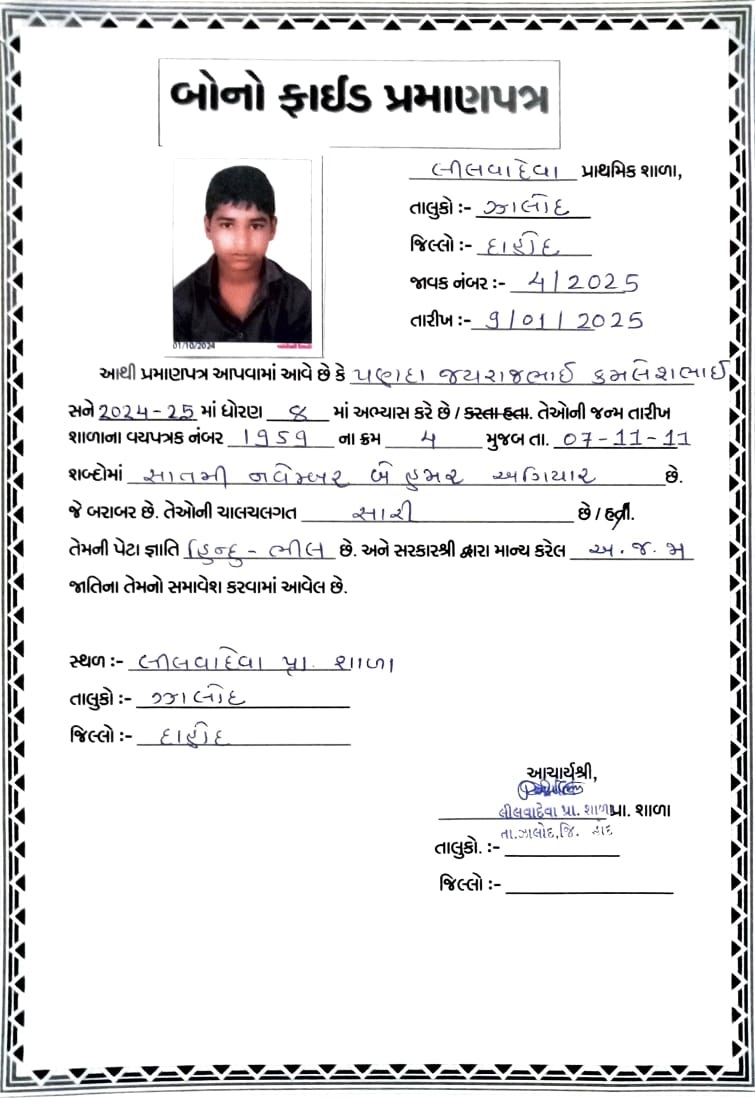 બોનો ફાઈડ પ્રમાણપત્ર
લીલવાદેવા પ્રાથમિક શાળા,
તાલુકો :- ઝાલોદ
જિલ્લો :- દાહોદ
જાવક નંબર :- 4/2025
તારીખ :- 9/01/2025
01/10/2024
આથી પ્રમાણપત્ર આપવામાં આવે છે કે પણદા જયરાજભાઈ કમલેશભાઈ
સને 2024-25 માં ધોરણ ૪ માં અભ્યાસ કરે છે / કરતા હતા. તેઓની જન્મ તારીખ
શાળાના વયપત્રક નંબર 1959 ના ક્રમ 4 મુજબ તા. 07-11-11
શબ્દોમાં સાતમી નવેમ્બર બે હજાર અગિયાર છે.
જે બરાબર છે. તેઓની ચાલચલગત સારી છે / હતી.
તેમની પેટા જ્ઞાતિ હિન્દુ - ભીલ છે. અને સરકારશ્રી દ્વારા માન્ય કરેલ અ.જ.જા
જાતિના તેમનો સમાવેશ કરવામાં આવેલ છે.
સ્થળ :- લીલવાદેવા પ્રા. શાળા
તાલુકો :- ઝાલોદ
જિલ્લો :- દાહોદ
આચાર્યશ્રી,
લીલવાદેવા પ્રા. શાળા પ્રા. શાળા
તા.ઝાલોદ,જિ. દાહોદ
તાલુકો. :-
જિલ્લો :-